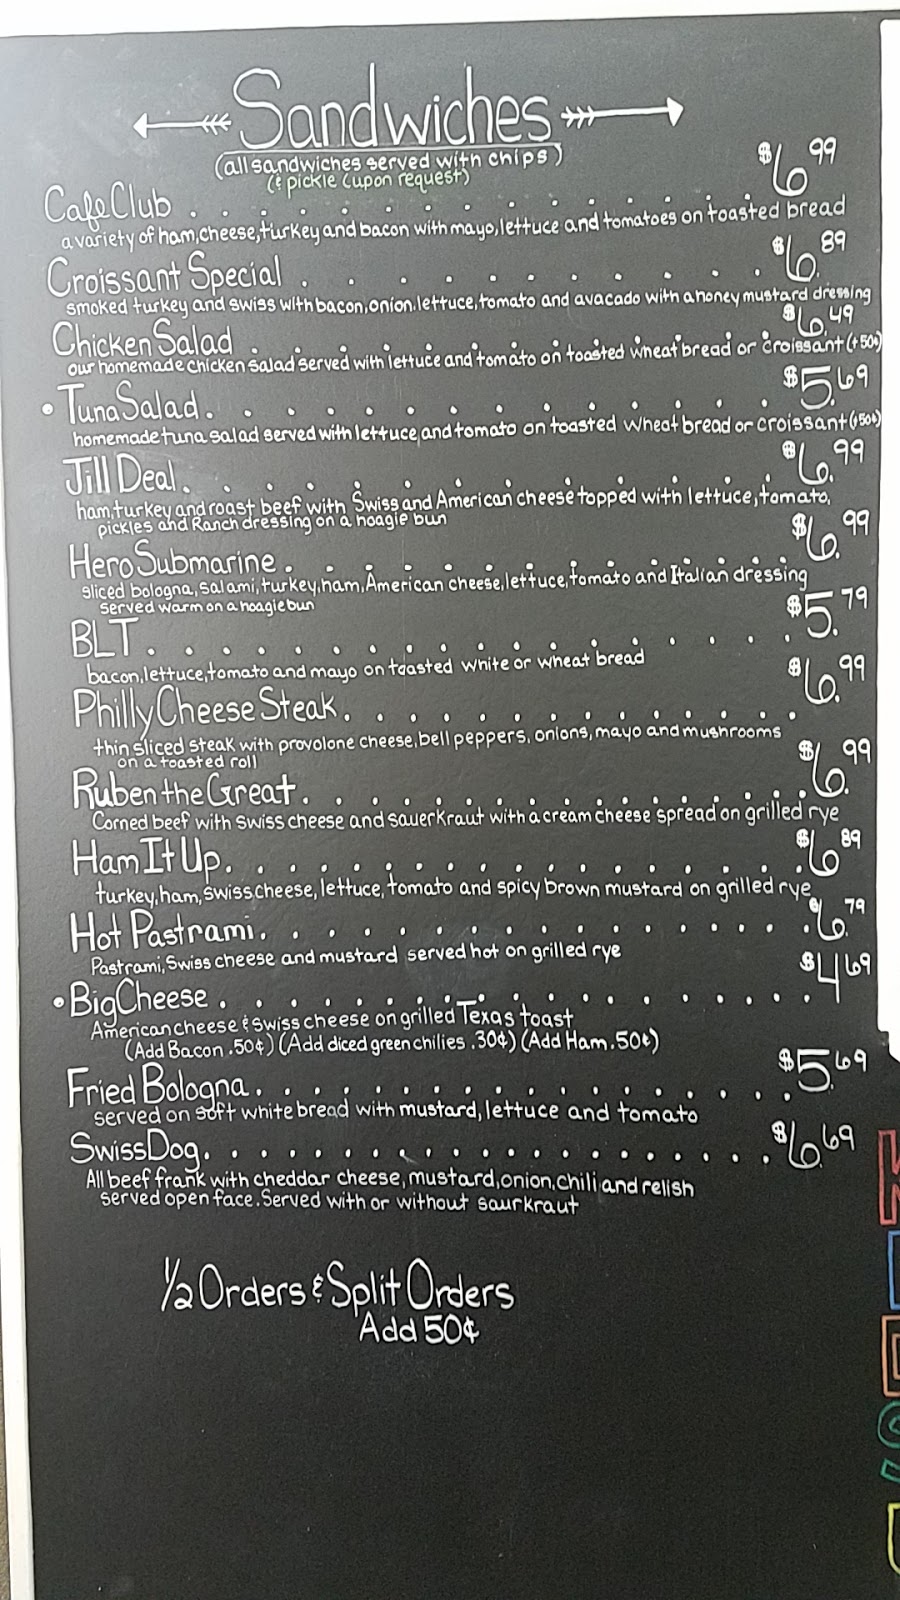 Sandwiches
(all sandwiches served with chips)
(& pickle (upon request)
Cafe Club . . . . . . . . . . . . . $6.99
a variety of ham, cheese, turkey and bacon with mayo, lettuce and tomatoes on toasted bread
Croissant Special . . . . . . . . . . $6.89
smoked turkey and swiss with bacon, onion, lettuce, tomato and avacado with a honey mustard dressing
Chicken Salad . . . . . . . . . . . . $6.49
our homemade chicken salad served with lettuce and tomato on toasted wheat bread or croissant (+50¢)
• Tuna Salad . . . . . . . . . . . . . $5.69
homemade tuna salad served with lettuce and tomato on toasted wheat bread or croissant (+50¢)
Jill Deal . . . . . . . . . . . . . . $6.99
ham, turkey and roast beef with Swiss and American cheese topped with lettuce, tomato,
pickles and Ranch dressing on a hoagie bun
Hero Submarine . . . . . . . . . . . . $6.99
sliced bologna, salami, turkey, ham, American cheese, lettuce, tomato and Italian dressing
served warm on a hoagie bun
BLT . . . . . . . . . . . . . . . . . $5.79
bacon, lettuce, tomato and mayo on toasted white or wheat bread
Philly Cheese Steak . . . . . . . . . . $6.99
thin sliced steak with provolone cheese, bell peppers, onions, mayo and mushrooms
on a toasted roll
Ruben the Great . . . . . . . . . . . . $6.99
Corned beef with swiss cheese and sauerkraut with a cream cheese spread on grilled rye
Ham It Up . . . . . . . . . . . . . . $6.89
turkey, ham, swiss cheese, lettuce, tomato and spicy brown mustard on grilled rye
Hot Pastrami . . . . . . . . . . . . . $6.79
Pastrami, Swiss cheese and mustard served hot on grilled rye
• Big Cheese . . . . . . . . . . . . . $4.69
American cheese & swiss cheese on grilled Texas toast
(Add Bacon .50¢) (Add diced green chilies .30¢) (Add Ham .50¢)
Fried Bologna . . . . . . . . . . . . . $5.69
served on soft white bread with mustard, lettuce and tomato
Swiss Dog . . . . . . . . . . . . . . . $6.69
All beef frank with cheddar cheese, mustard, onion, chili and relish
served open face. Served with or without saurkraut
1/2 Orders & Split Orders
Add 50¢